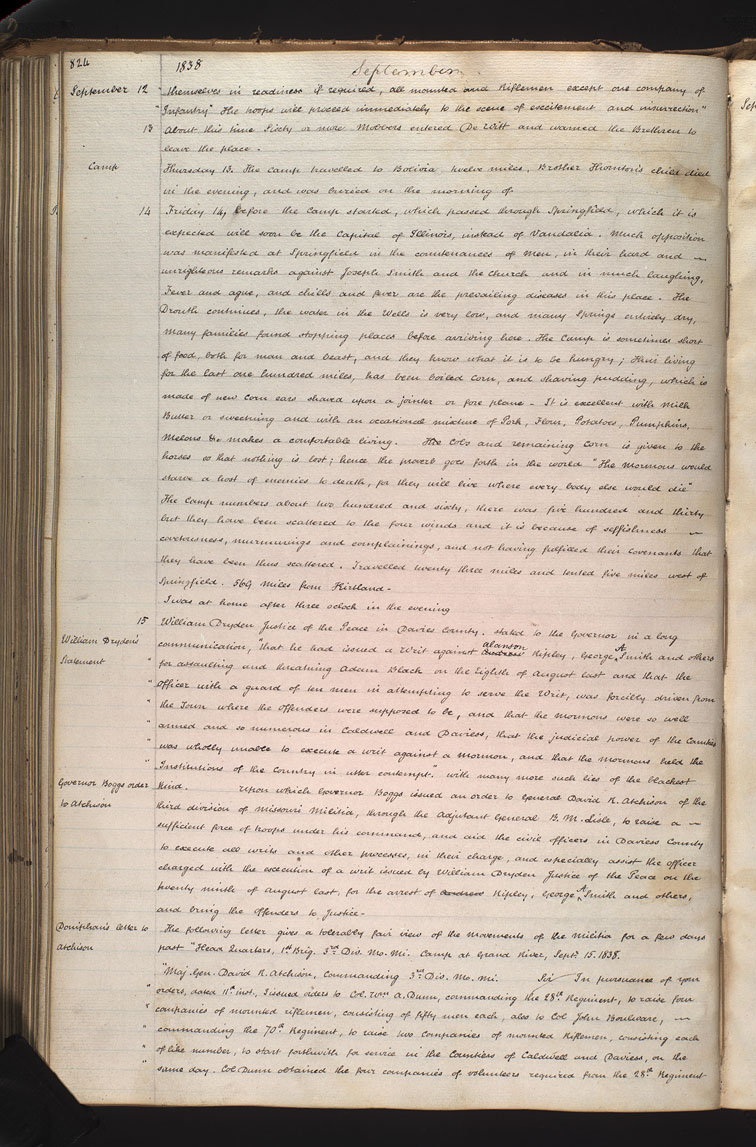 824 1838 September
September 12 themselves in readiness if required, all mounted and Riflemen except one company of
"Infantry" The troops will proceed immediately to the scene of excitement and insurrection"
13 About this time Sixty or more Mobbers entered De Witt and warned the Brethren to
leave the place.
Camp Thursday 13. The camp travelled to Bolivia, twelve miles, Brother Thornton's child died
in the evening, and was buried on the morning of
14 Friday 14, before the Camp started, which passed through Springfield, which it is
expected will soon be the Capital of Illinois, instead of Vandalia. Much opposition
was manifested at Springfield in the countenances of men, in their hard and —
unrighteous remarks against Joseph Smith and the Church and in much laughing,
Fever and ague, and chills and fever are the prevailing diseases in this place. The
Drouth continues, the water in the Wells is very low, and many Springs entirely dry,
Many families found stopping places before arriving here. The Camp is sometimes short
of food, both for man and beast, and they know what it is to be hungry; Their living
for the last one hundred miles, has been boiled corn, and shaving pudding, which is
made of new corn ears shaved upon a jointer or fore plane - It is excellent with milk
Butter or sweetning and with an occasional mixture of Pork, Flour, Potatoes, Pumpkins,
Melons &c makes a comfortable living. The Cobs and remaining corn is given to the
horses so that nothing is lost; hence the proverb goes forth in the world "The Mormons would
starve a host of enemies to death, for they will live where every body else would die"
The Camp numbers about two hundred and sixty, there was five hundred and thirty
but they have been scattered to the four winds and it is because of selfishness —
covetousness, murmurings and complainings, and not having fulfilled their covenants that
they have been thus scattered. Travelled twenty three miles and tented five miles west of
Springfield. 569 miles from Kirtland -
I was at home after three oclock in the evening
15 William Dryden Justice of the Peace in Davies County. stated to the Governor in a long
William Dryden's communication, "that he had issued a Writ against alanson Ripley, George A. Smith and others
Statement for assaulting and threatning Adam Black on the Eighth of August last and that the
" Officer with a guard of ten men in attempting to serve the Writ, was forcibly driven from
" the Town where the offenders were supposed to be, and that the Mormons were so well
" armed and so numerous in Caldwell and Daviess, that the judicial power of the Counties
" was wholly unable to execute a writ against a Mormon, and that the mormons held the
" Institutions of the Country in utter contempt." with many more such lies of the blackest
Governor Boggs order kind. Upon which Governor Boggs issued an order to General David R. Atchison of the
to Atchison third division of Missouri Militia, through the Adjutant General B. M. Lisle, to raise a —
sufficient force of troops under his command, and aid the civil officers in Daviess County
to execute all writs and other processes, in their charge, and especially assist the officer
charged with the execution of a writ issued by William Dryden Justice of the Peace on the
twenty ninth of August last, for the arrest of andrew Ripley, George A Smith and others,
and bring the offenders to Justice -
Doniphan's letter to The following letter gives a tolerably fair view of the movements of the Militia for a few days
Atchison past "Head Quarters, 1st Brig. 3rd Div. Mo. Mi. Camp at Grand River, Sept. 15. 1838.
"Maj. Gen. David R. Atchison, Commanding 3rd Div. Mo. Mi. Sir In pursuance of your
" orders, dated 11th inst, I issued orders to Col. Wm A. Dunn, commanding the 28th Regiment, to raise four
" companies of mounted riflemen, consisting of fifty men each, also to Col John Boulware, —
" commanding the 70th Regiment, to raise two Companies of mounted Riflemen, consisting each
" of like number, to start forthwith for service in the Counties of Caldwell and Daviess, on the
" same day. Col Dunn obtained the four companies of volunteers required from the 28th Regiment